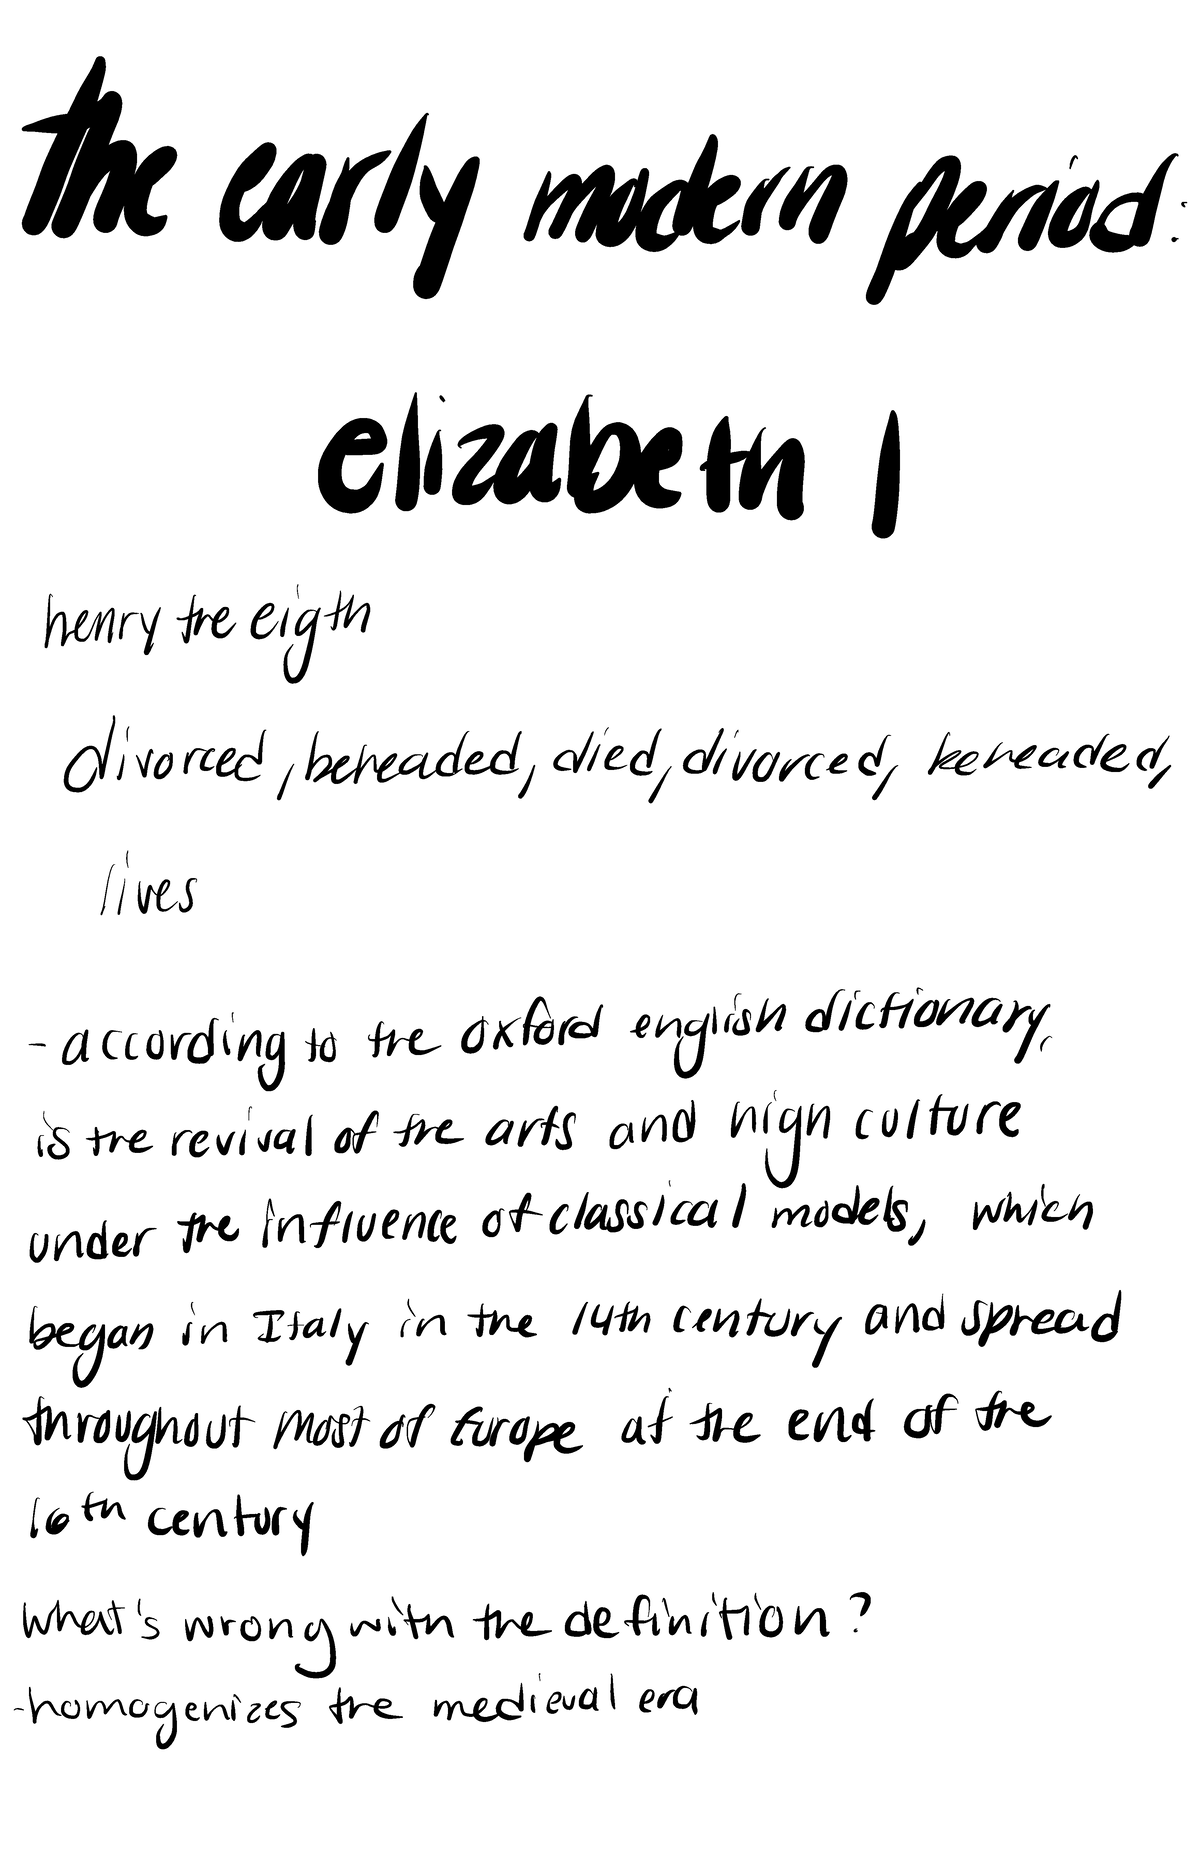 the early modern period:
elizabeth I
henry the eigth
divorced, beheaded, died, divorced, beheaded,
lives
- according to the oxford english dictionary,
is the revival of the arts and high culture
under the influence of classical models, which
began in Italy in the 14th century and spread
throughout most of Europe at the end of the
16th century
what's wrong with the definition?
-homogenizes the medieval era